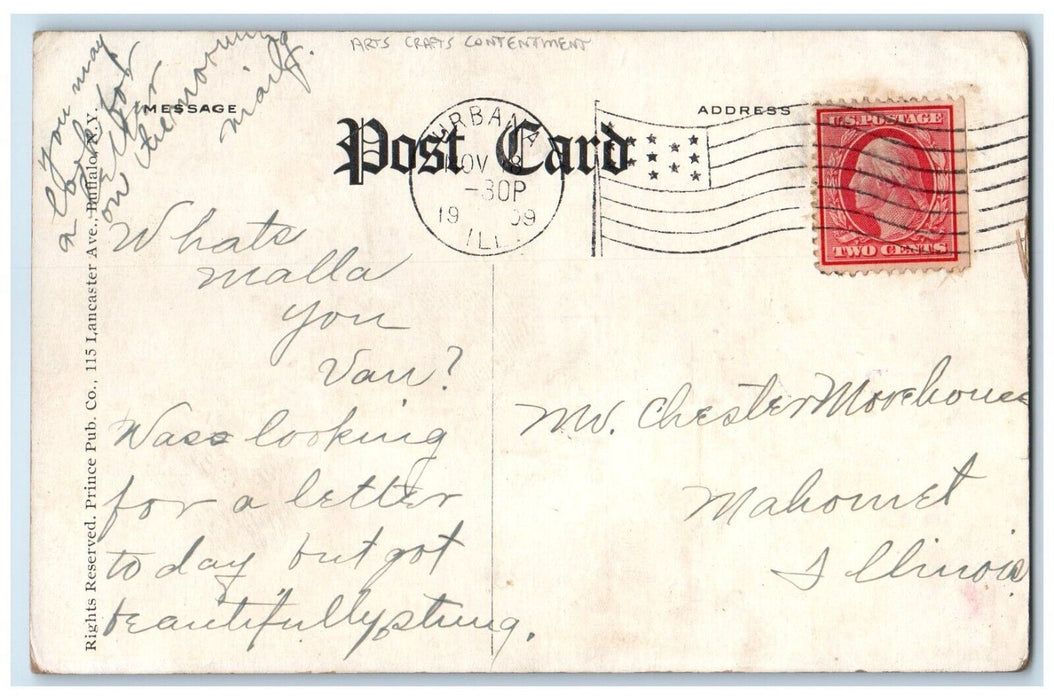 ARTS CRAFTS CONTENTMENT
MESSAGE
Post Card
ADDRESS
URBANA
NOV 18
-30P
19 09
ILL.
U.S. POSTAGE
TWO CENTS
you may
look for
a letter
on the morning
mail.
Whats
malla
you
Van?
Was looking
for a letter
to day but got
beautifully stung.
Mr. Chester Morehouse
Mahomet
Illinois
Rights Reserved. Prince Pub. Co., 115 Lancaster Ave., Buffalo, N.Y.